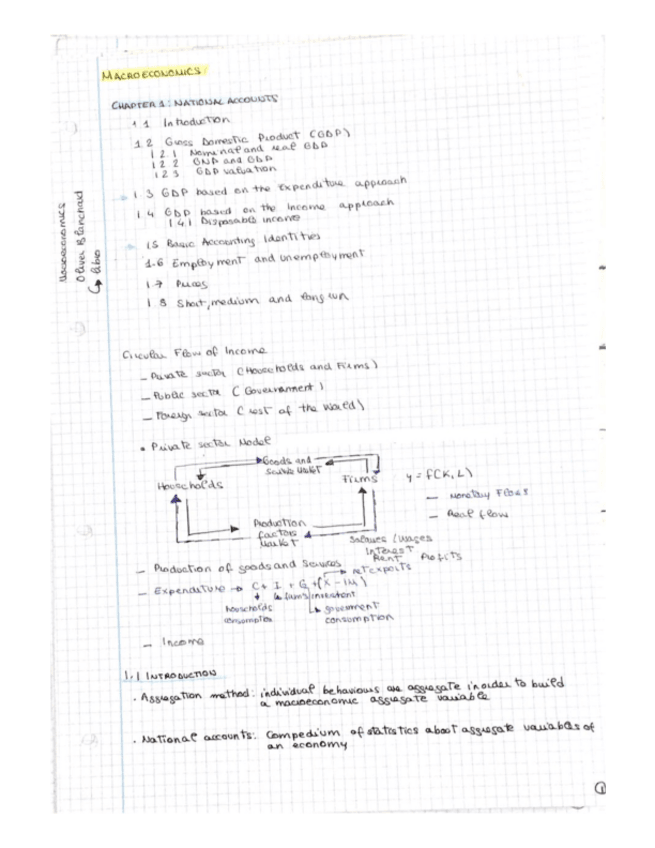 MACROECONOMICS
CHAPTER 1: NATIONAL ACCOUNTS
1.1 Introduction
1.2 Gross Domestic Product (GDP)
1 2 1 Nominal and real GDP
1 2 2 GNP and GDP
1 2 3 GDP valuation
1.3 GDP based on the Expenditure approach
1.4 GDP based on the Income approach
1.4.1 Disposable income
1.5 Basic Accounting Identities
1.6 Employment and unemployment
1.7 Prices
1 8 Short, medium and long run
Macroeconomics
Oliver Blanchard
↳ libro
Circular Flow of Income
- Private sector (Households and Firms)
- Public sector (Government)
- Foreign sector (rest of the world)
• Private sector Model
Goods and
Service Market
Households
Firms
Y = f(K, L)
- Monetary Flows
- Real flow
Production
factors
Market
Salaries / wages
Interest
Rent Profits
- Production of goods and services
- Expenditure → C + I + G + (X - M)
net exports
firms investment
households
consumption
government
consumption
- Income
1.1 INTRODUCTION
. Aggregation method: individual behaviours are aggregate in order to build
a macroeconomic aggregate variable
. National accounts: Compedium of statistics about aggregate variables of
an economy
1